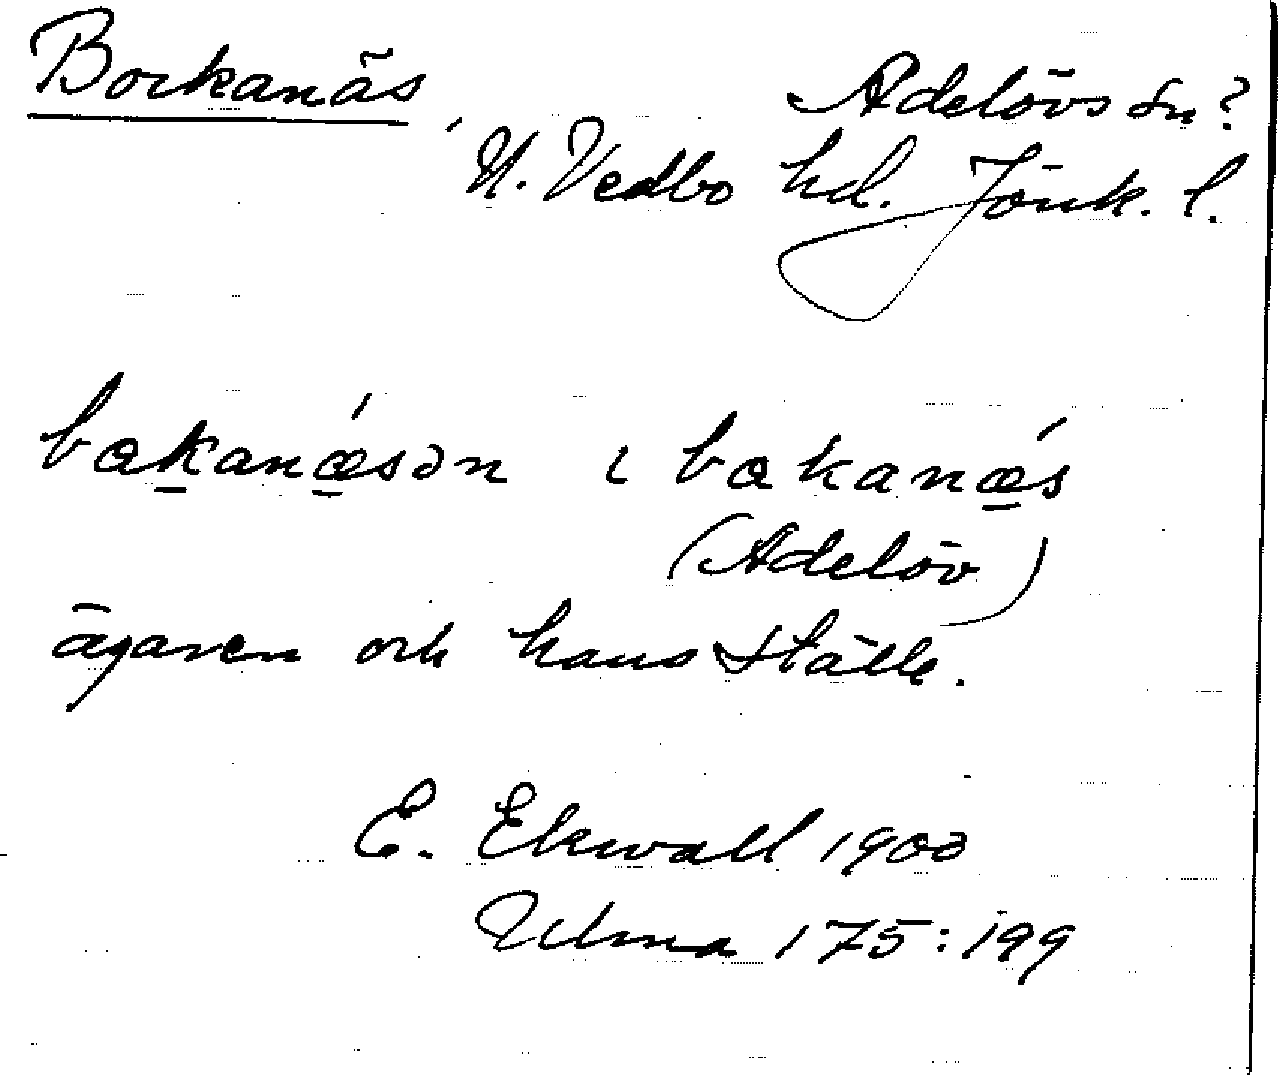 Borkanäs
Adelövs sn?
N. Vedbo hd. Jönk. l.
bakanǽsən i bakanǽs
(Adelöv)
ägaren och hans ställe.
E. Ekwall 1900
Ulma 175:199